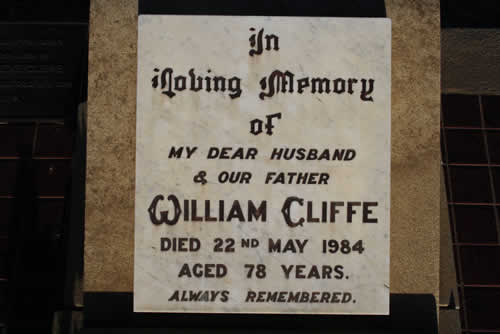 In
Loving Memory
of
MY DEAR HUSBAND
& OUR FATHER
WILLIAM CLIFFE
DIED 22ND MAY 1984
AGED 78 YEARS.
ALWAYS REMEMBERED.